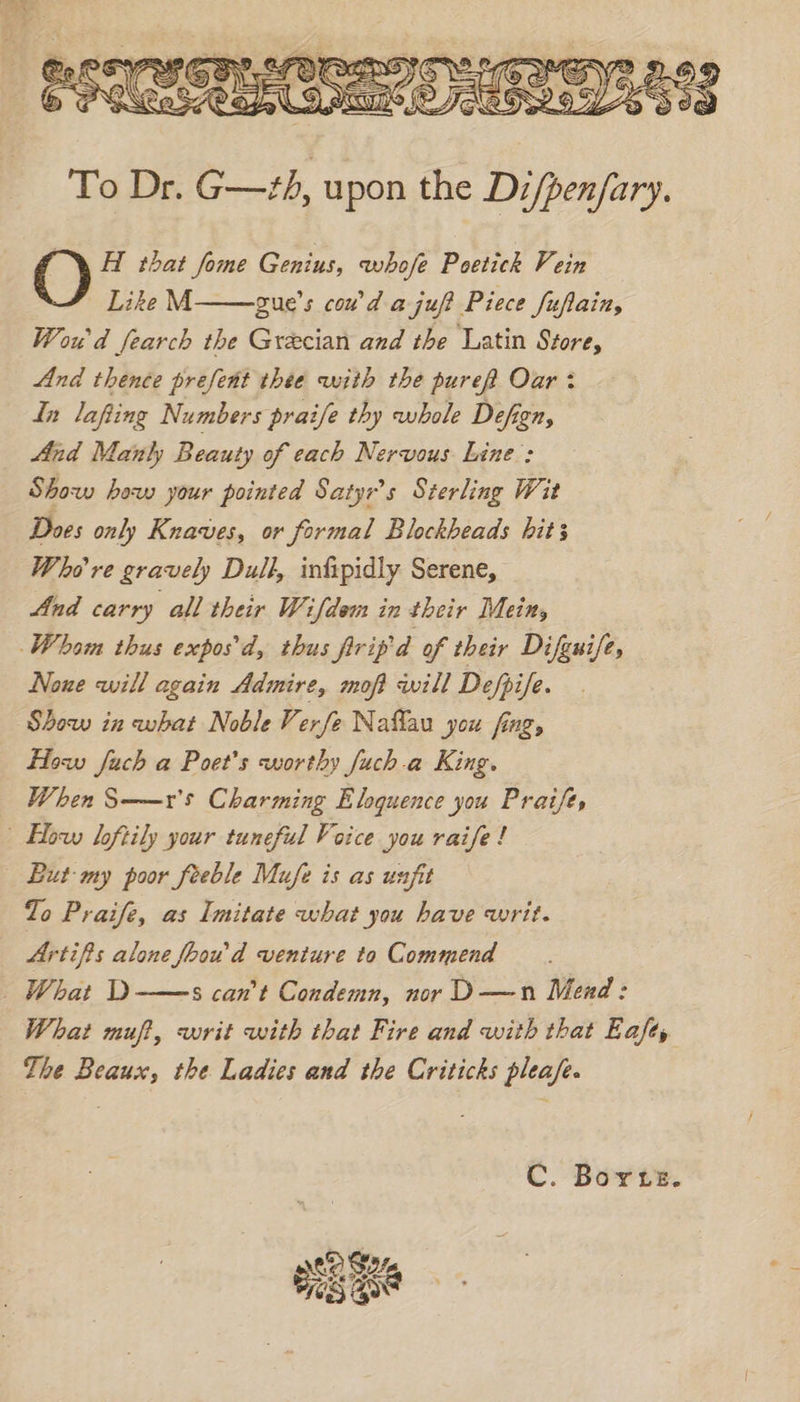 To Dr. G—th, upon the Diſpenſary.
OH that ſome Genius, whoſe Poetick Vein
Like M——gue's cou'd a juſt Piece ſuſtain,
Wou'd ſearch the Græcian and the Latin Store,
And thence preſent thee with the pureſt Oar :
In laſting Numbers praiſe thy whole Deſign,
And Manly Beauty of each Nervous Line :
Show how your pointed Satyr's Sterling Wit
Does only Knaves, or formal Blockheads hit;
Who're gravely Dull, inſipidly Serene,
And carry all their Wiſdom in their Mein,
Whom thus expos'd, thus ſtrip'd of their Diſguiſe,
None will again Admire, moſt will Deſpiſe.
Show in what Noble Verſe Naſſau you ſing,
How ſuch a Poet's worthy ſuch a King.
When S——r's Charming Eloquence you Praiſe,
How loftily your tuneful Voice you raiſe !
But my poor feeble Muſe is as unfit
To Praiſe, as Imitate what you have writ.
Artiſts alone ſhou'd venture to Commend
What D——s can't Condemn, nor D—n Mend :
What muſt, writ with that Fire and with that Eaſe,
The Beaux, the Ladies and the Criticks pleaſe.
C. BOYLE.